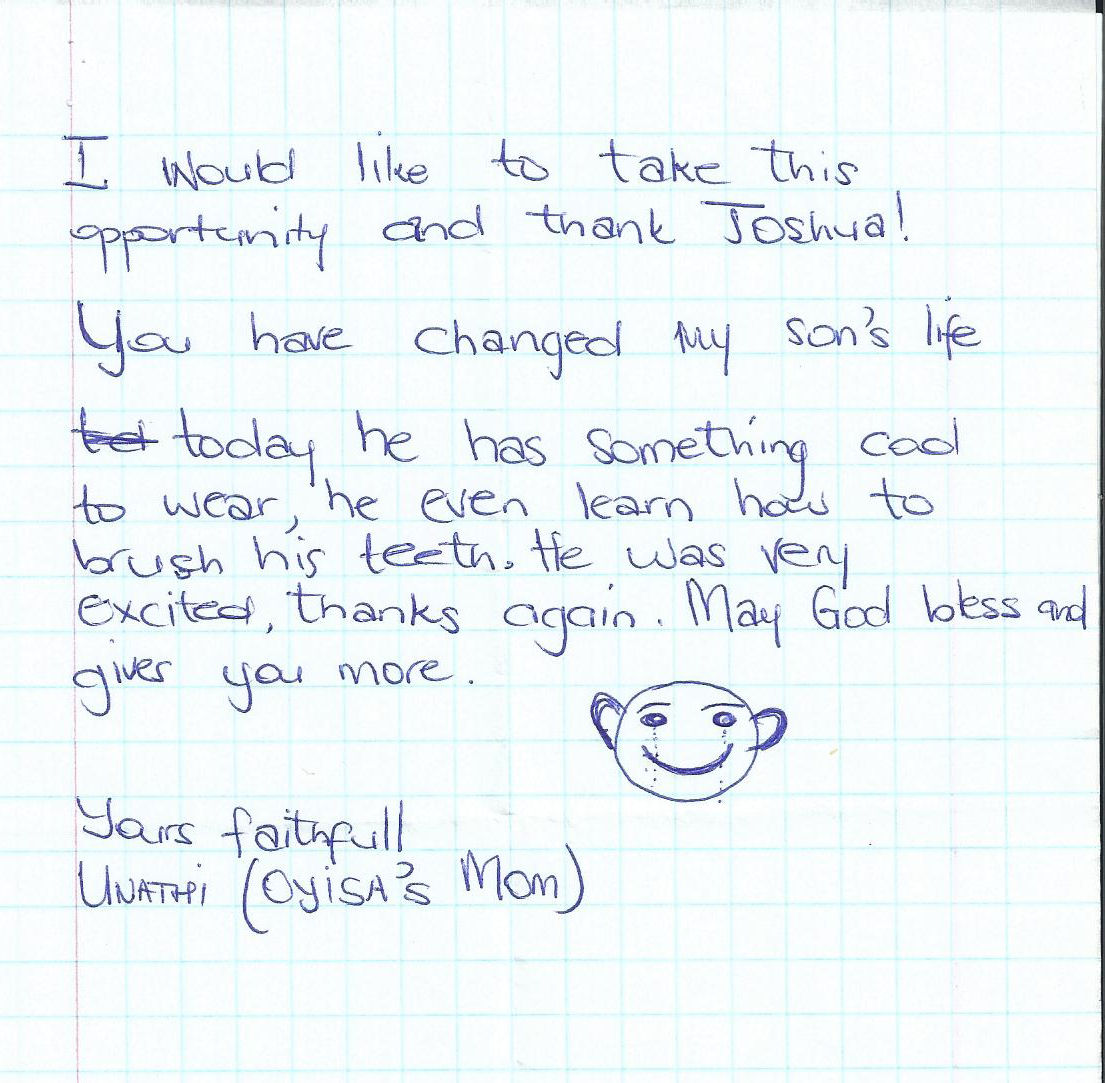 I would like to take this
opportunity and thank Joshua!
You have changed my son's life
today he has something cool
to wear, he even learn how to
brush his teeth. He was very
excited, thanks again. May God bless and
gives you more.
Yours faithfull
UNATHI (OYiSA's Mom)